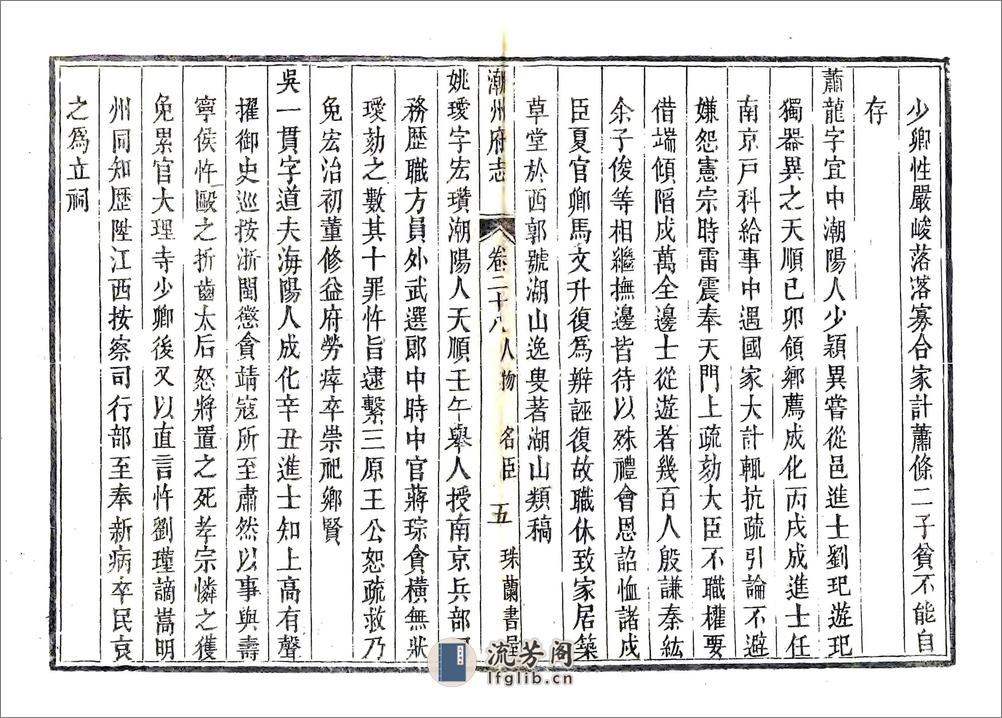 少卿性嚴峻落落寡合家計蕭條二子貧不能自
存
蕭龍字宜中潮陽人少穎異嘗從邑進士劉玘遊玘
獨器異之天順己卯領鄉薦成化丙戌成進士任
南京戸科給事中遇國家大計輒抗疏引論不避
嫌怨憲宗時雷震奉天門上疏劾大臣不職權要
借端傾陷戍萬全邊士從遊者幾百人殷謙秦紘
余子俊等相繼撫邊皆待以殊禮會恩詔恤諸戍
臣夏官卿馬文升復爲辨誣復故職休致家居築
草堂於西郭號湖山逸叟著湖山類稿
潮州府志 卷二十八 人物 名臣 五 珠蘭書屋
姚璦字宏瓚潮陽人天順壬午舉人授南京兵部
務歷職方員外武選郎中時中官蔣琮貪橫無狀
璦劾之數其十罪忤旨逮繫三原王公恕疏救乃
免宏治初董修益府勞瘁卒崇祀鄉賢
吳一貫字道夫海陽人成化辛丑進士知上高有聲
擢御史巡按浙閩懲貪靖寇所至肅然以事與壽
寧侯忤毆之折齒太后怒將置之死孝宗憐之獲
免累官大理寺少卿後又以直言忤劉瑾謫嵩明
州同知歷陞江西按察司行部至奉新病卒民哀
之爲立祠
流芳阁
lfglib.cn